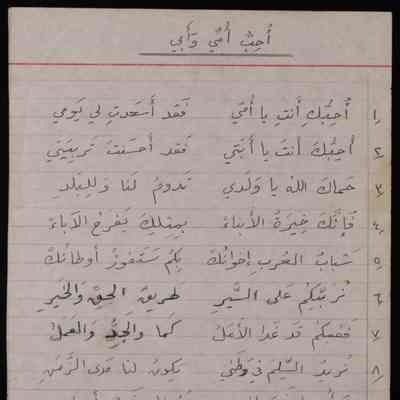 أُحِبُّ أُمِّي وَأَبِي
١ أُحِبُّكِ أَنتِ يا أُمّي فَقد أَسعَدتِ لي يَومي
٢ أُحِبُّكَ أنتَ يا أَبَتي فَقد أَحسَنتَ تَربِيَتي
٣ حَماكَ اللهُ يا وَلَدي تَدومُ لَنا وَلِلبَلَدِ
٤ فَإِنَّكَ خِيَرَةُ الأَبناءْ بِمِثلِكَ يَفرَحُ الآباءْ
٥ شَبابُ العُرب إِخوانُكْ بِكُم سَتَفوزُ أَوطانُكْ
٦ نُرَبّيكُم عَلى السَّيرِ لِطَريقِ الحَقِّ وَالخَيرِ
٧ قَد غَدا الأَمَلُ كَما وَالجَدُّ وَالعَمَلُ
٨ نُريدُ السِّلمَ في وَطَني يَكونُ لنا مَدى الزَّمَنِ